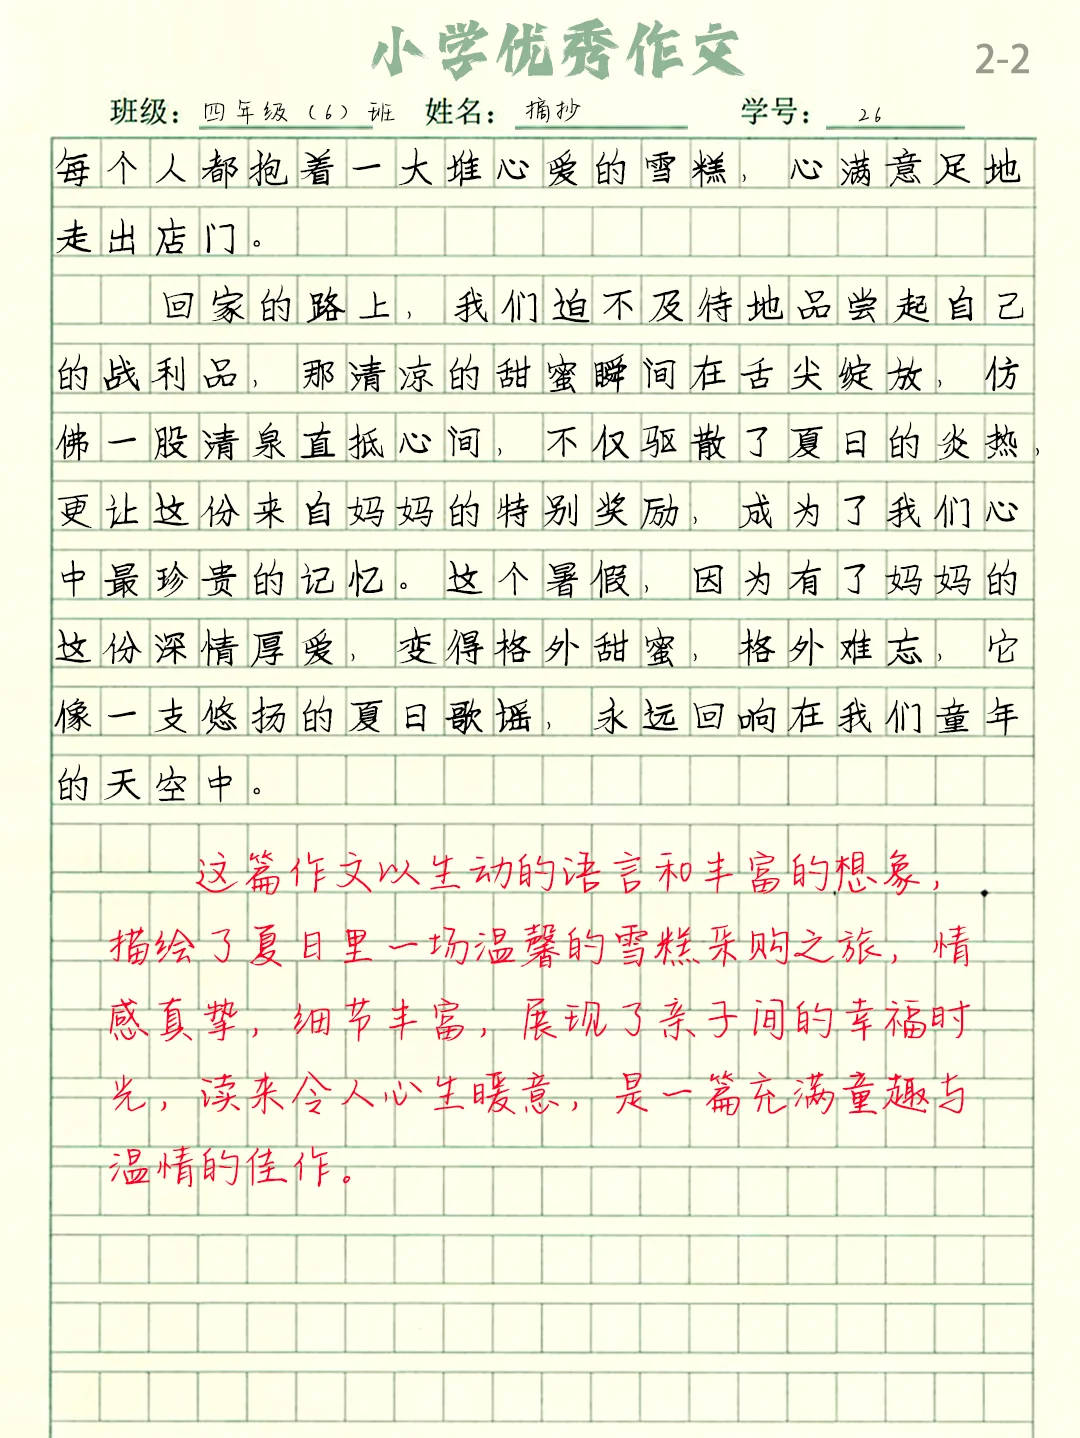 小学优秀作文
2-2
班级：四年级（6）班 姓名：摘抄 学号：26
每个人都抱着一大堆心爱的雪糕，心满意足地
走出店门。
回家的路上，我们迫不及待地品尝起自己
的战利品，那清凉的甜蜜瞬间在舌尖绽放，仿
佛一股清泉直抵心间，不仅驱散了夏日的炎热，
更让这份来自妈妈的特别奖励，成为了我们心
中最珍贵的记忆。这个暑假，因为有了妈妈的
这份深情厚爱，变得格外甜蜜，格外难忘，它
像一支悠扬的夏日歌谣，永远回响在我们童年
的天空中。
这篇作文以生动的语言和丰富的想象，
描绘了夏日里一场温馨的雪糕采购之旅，情
感真挚，细节丰富，展现了亲子间的幸福时
光，读来令人心生暖意，是一篇充满童趣与
温情的佳作。